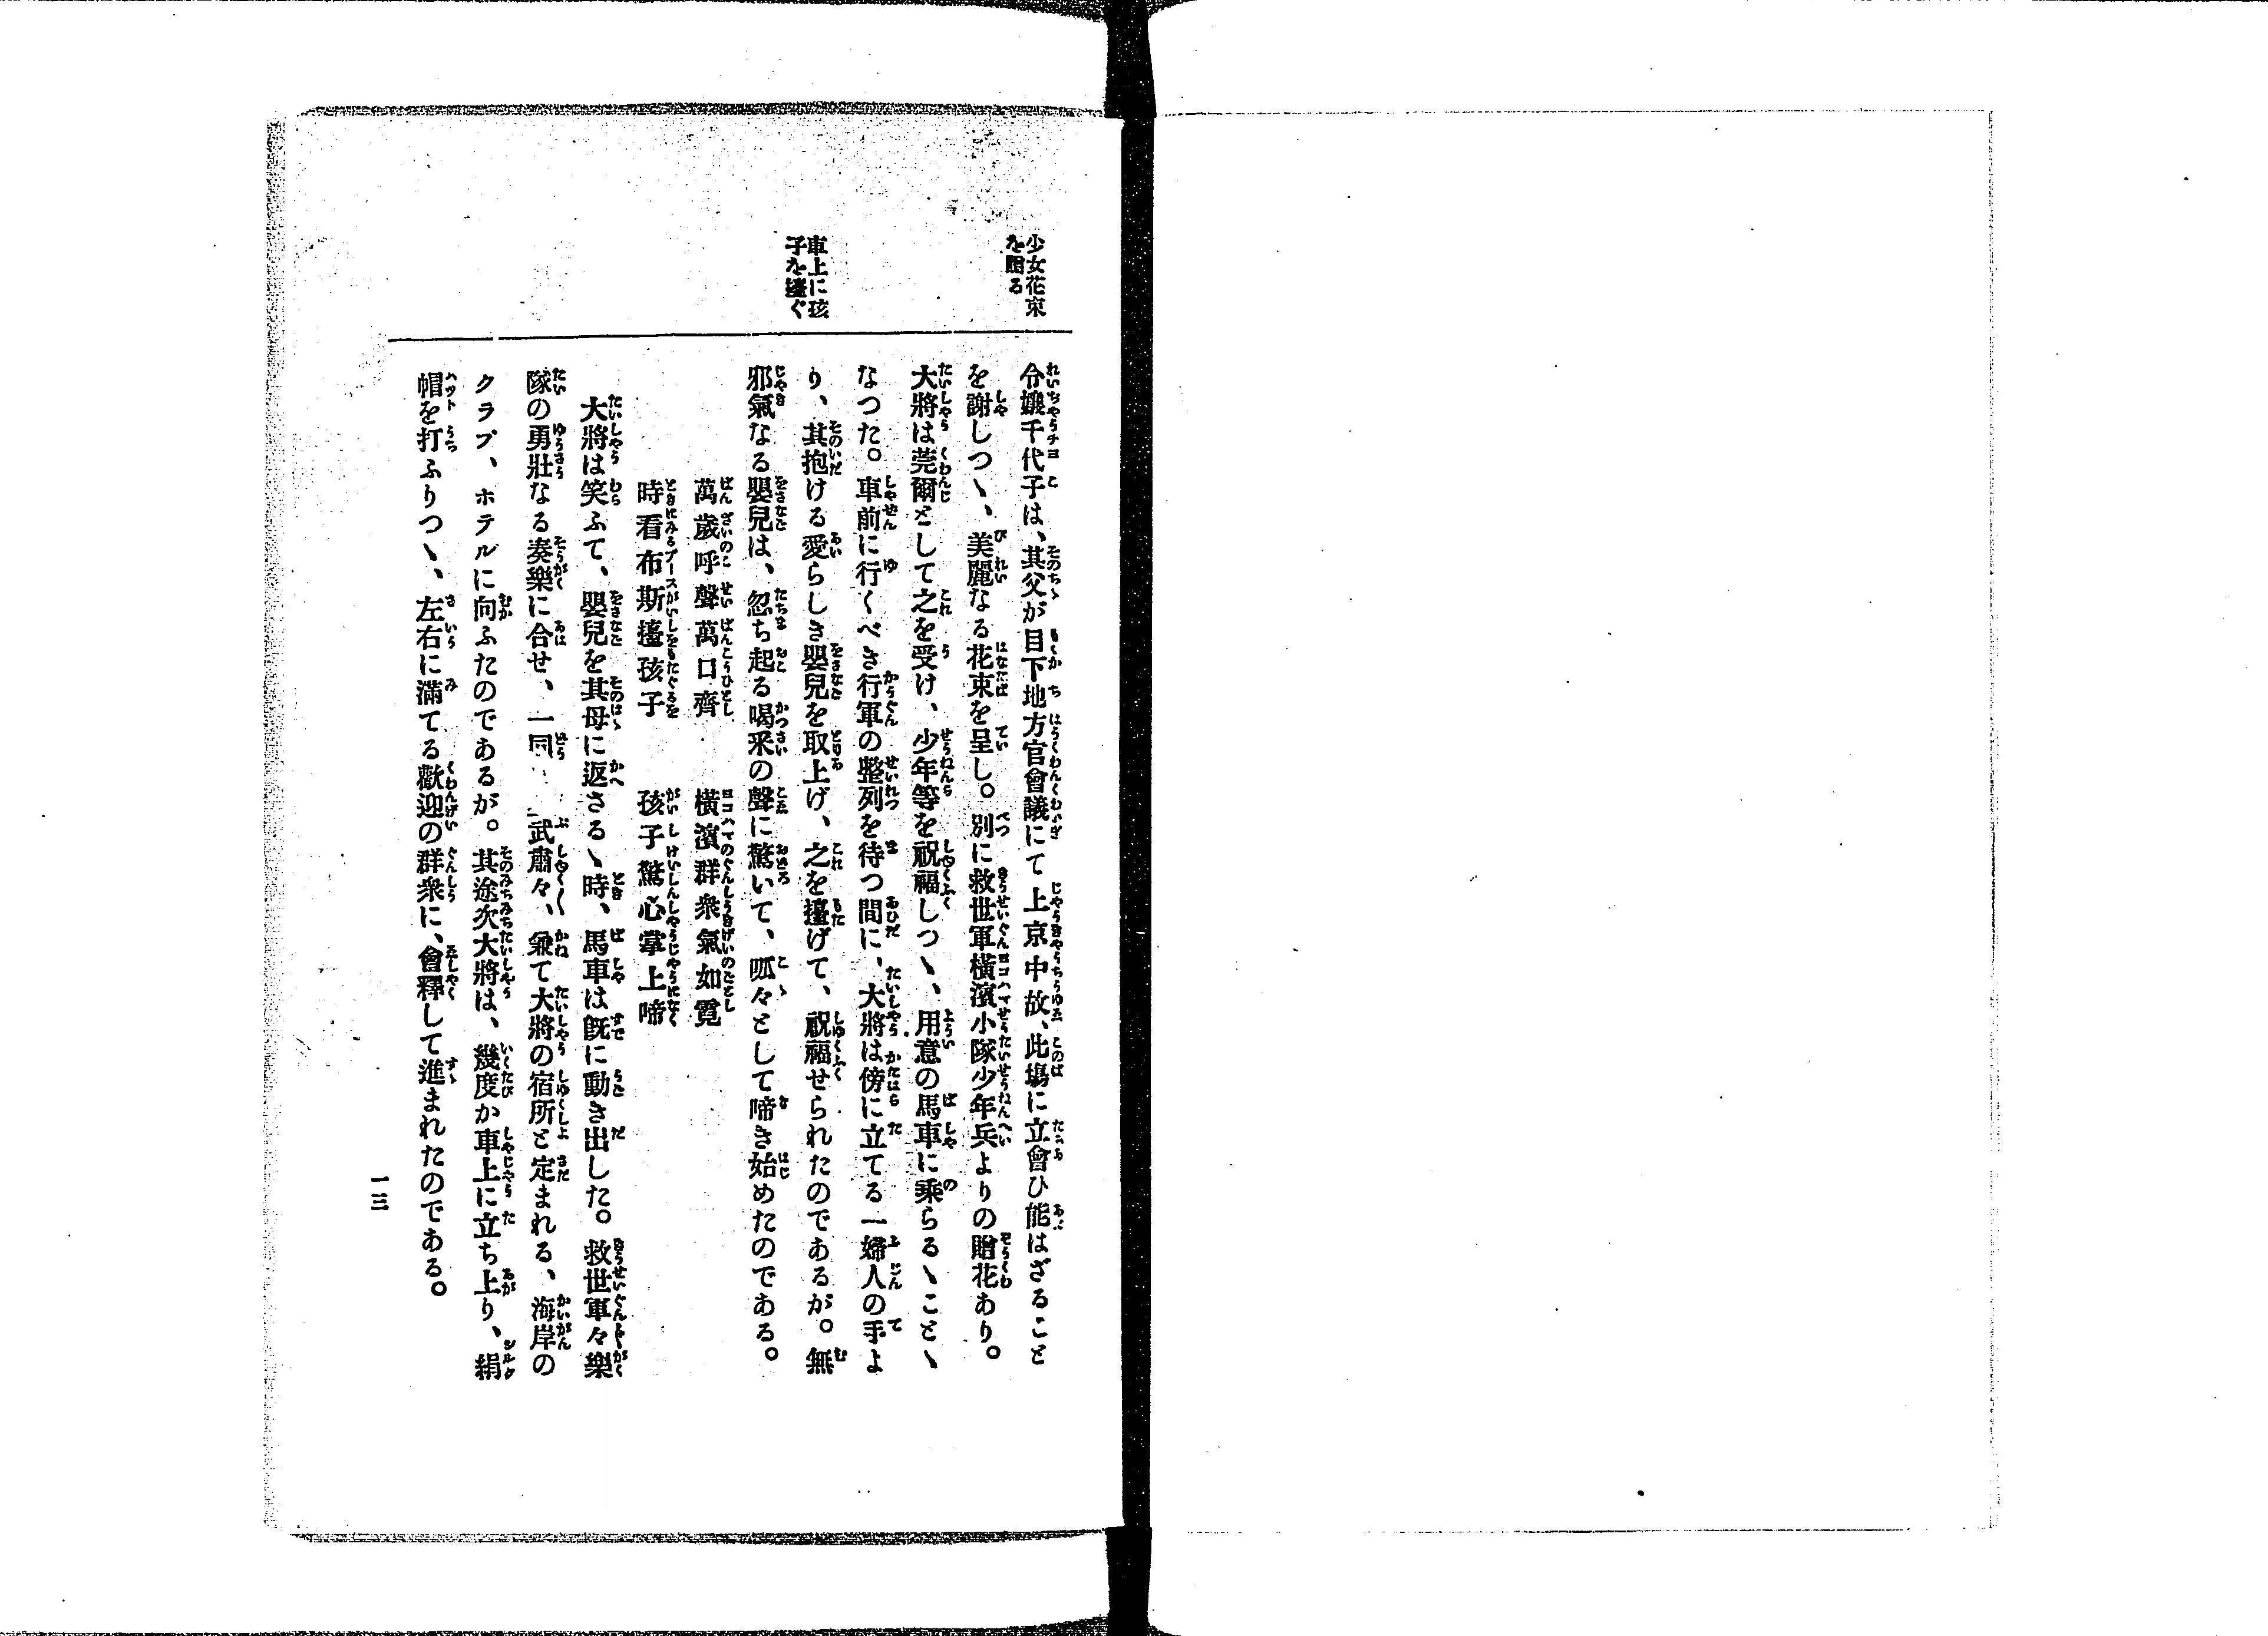 少女花束
を贈る
車上に孩
子を擡ぐ
令孃千代子は、其父が目下地方官會議にて上京中故、此塲に立會ひ能はざること
を謝しつヽ、美麗なる花束を呈し。別に救世軍橫濱小隊少年兵よりの贈花あり。
大將は莞爾として之を受け、少年等を祝福しつヽ、用意の馬車に乘らるヽことヽ
なつた。車前に行くべき行軍の整列を待つ間に、大將は傍に立てる一婦人の手よ
り、其抱ける愛らしき嬰兒を取上げ、之を擡げて、祝福せられたのであるが。無
邪氣なる嬰兒は、忽ち起る喝采の聲に驚いて、呱々として啼き始めたのである。
萬歲呼聲萬口齊　橫濱群衆氣如霓
時看布斯擡孩子　孩子驚心掌上啼
大將は笑ふて、嬰兒を其母に返さるヽ時、馬車は旣に動き出した。救世軍々樂
隊の勇壯なる奏樂に合せ、一同武肅々、兼て大將の宿所と定まれる、海岸の
クラブ、ホテルに向ふたのであるが。其途次大將は、幾度か車上に立ち上り、絹
帽を打ふりつヽ、左右に滿てる歡迎の群衆に、會釋して進まれたのである。
一三